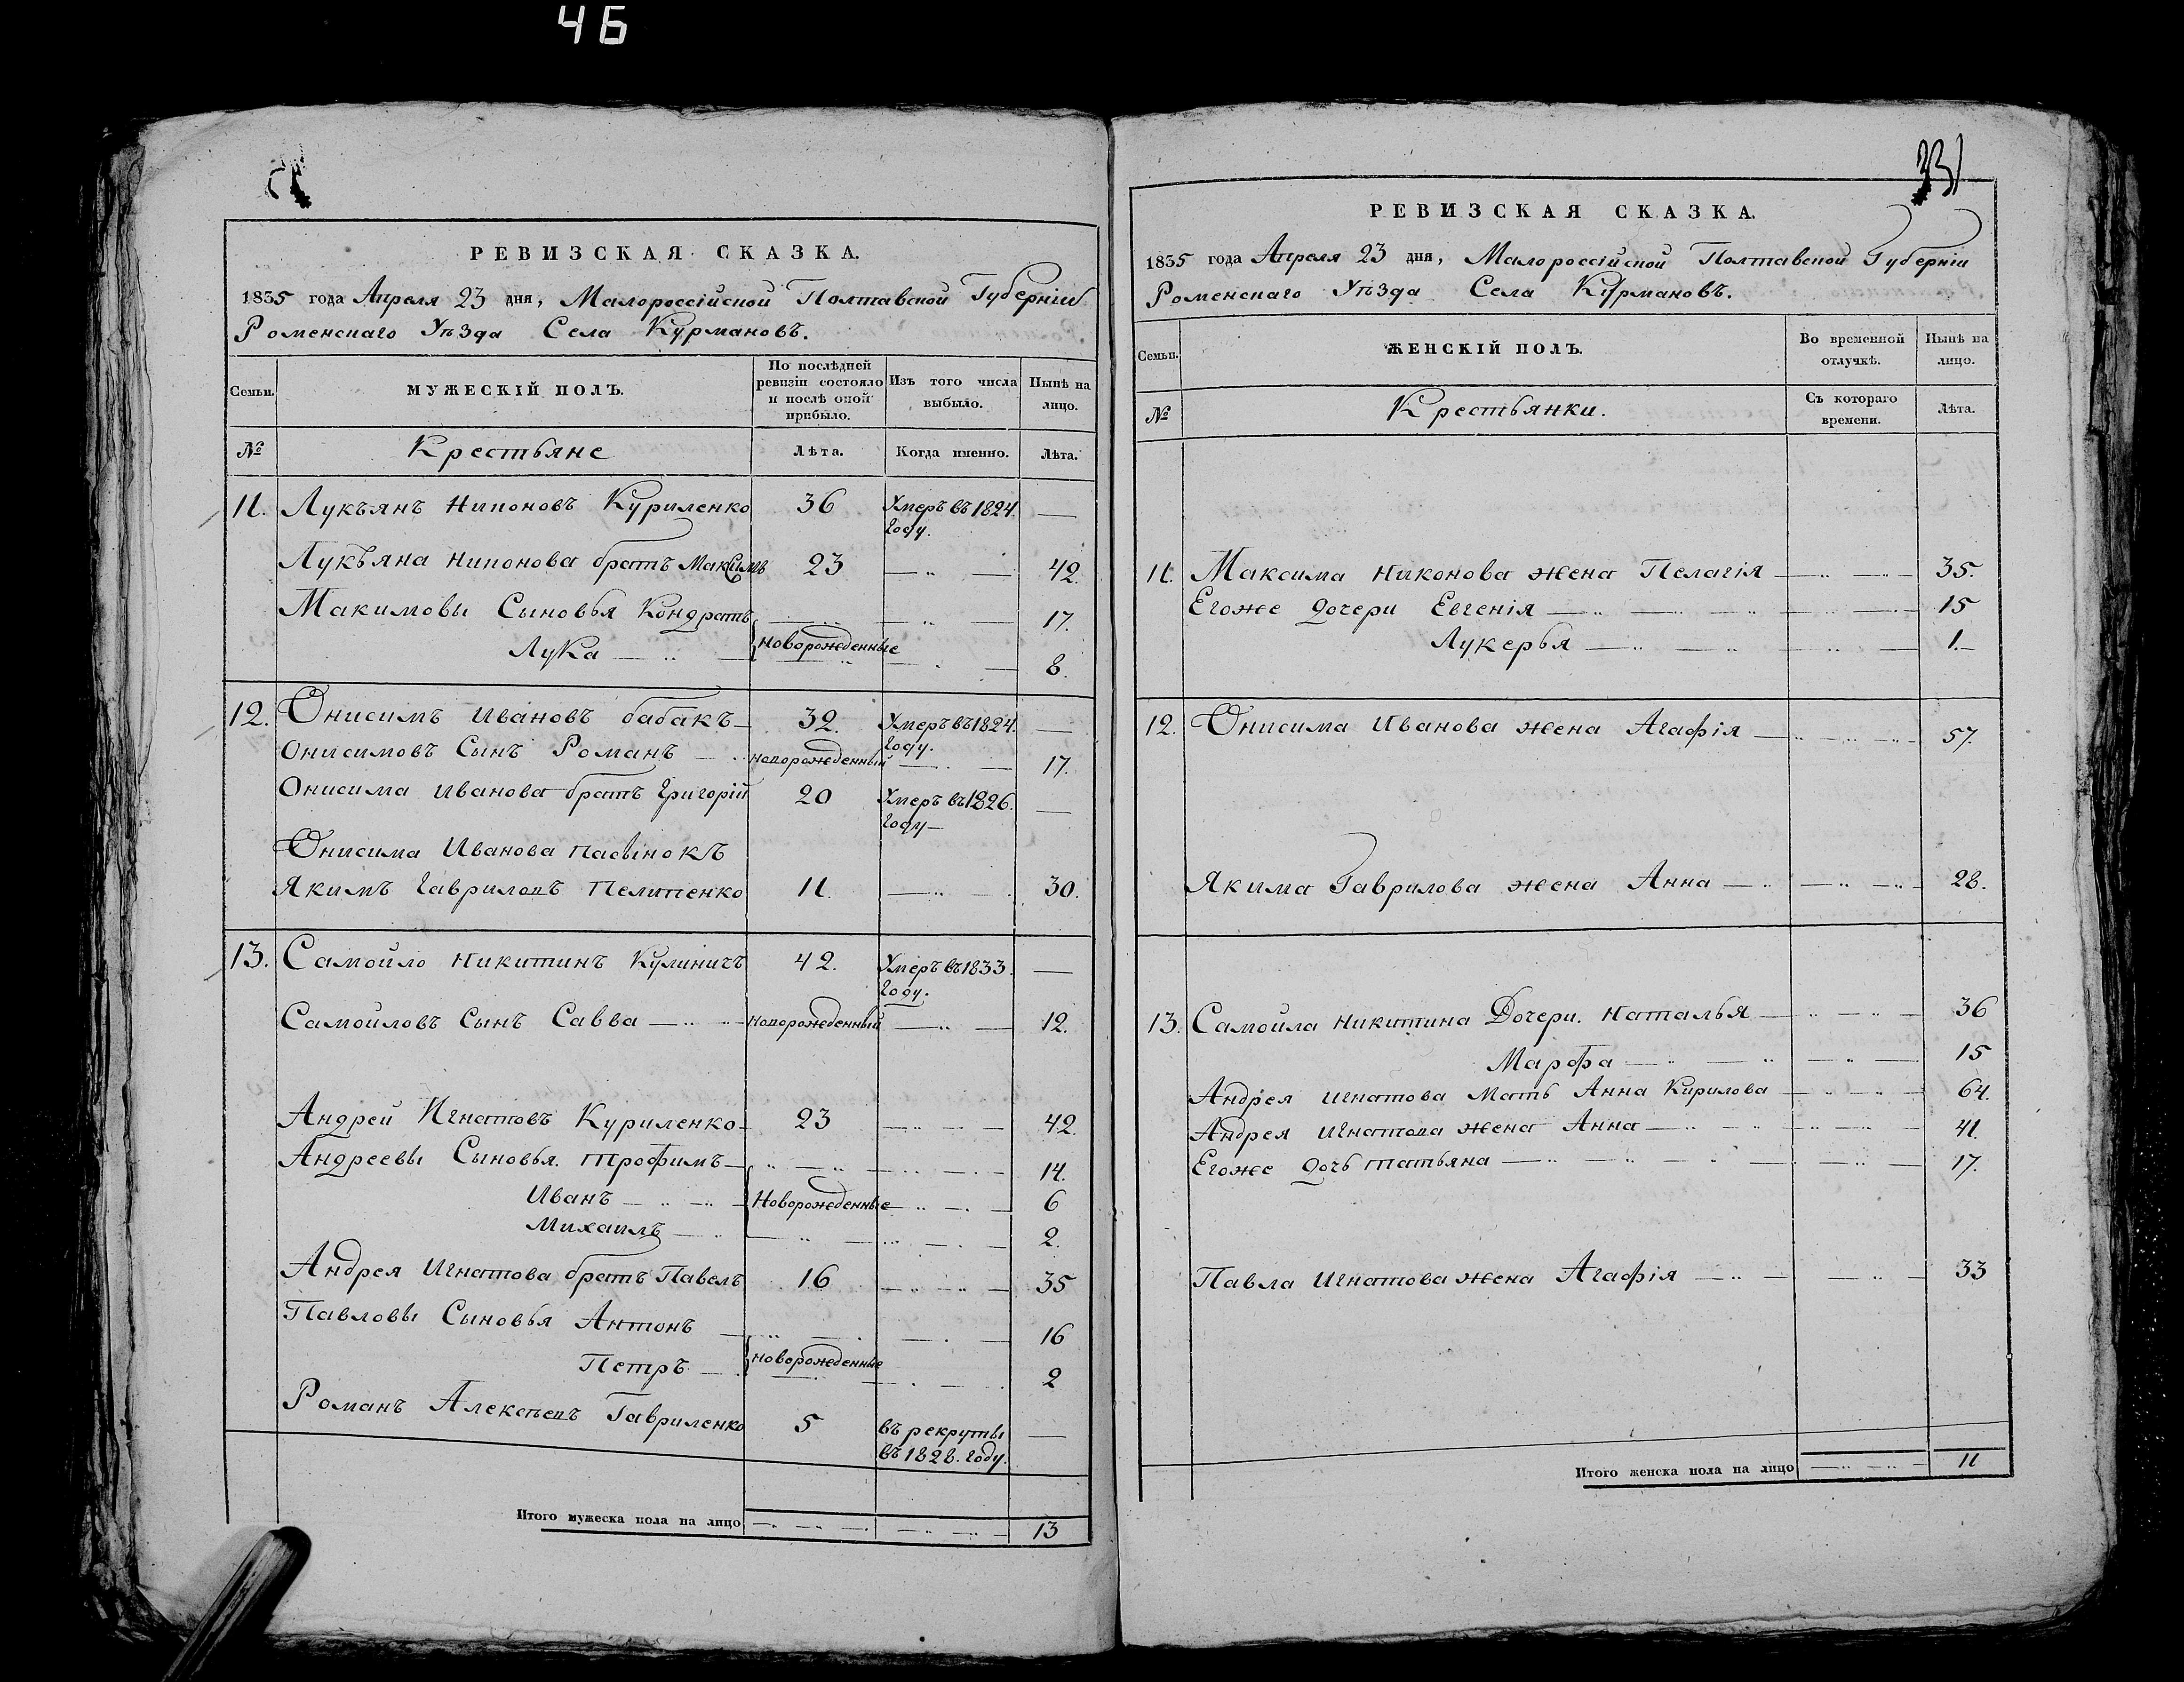 46
РЕВИЗСКАЯ СКАЗКА.
1835 года Апреля 23 дня, Малороссійской Полтавской Губерніи
Роменскаго Уѣзда Села Курмановъ.
Семьи. МУЖЕСКІЙ ПОЛЪ. По послѣдней ревизіи состояло и послѣ оной прибыло. Изъ того числа выбыло. Нынѣ на лицо.
№ Крестьяне Лѣта. Когда именно. Лѣта.
11. Лукъянъ Никоновъ Куриленко 36 Умеръ въ 1824. году. —
Лукъяна Никонова братъ Максимъ 23 — 42.
Макимовы Сыновья Кондратъ — 17.
Лука — новорожденные — 8.
12. Онисимъ Ивановъ бабакъ 32. Умеръ въ 1824. году. —
Онисимовъ Сынъ Романъ — новорожденный — 17.
Онисима Иванова братъ Григорій 20 Умеръ въ 1826. году —
Онисима Иванова пасвінокъ
Якимъ Гавриловъ Пелипенко 11. — 30.
13. Самойло Никитинъ Кулиничъ 42. Умеръ въ 1833. году. —
Самойловъ Сынъ Савва — новорожденный — 12.
Андрей Игнатовъ Куриленко 23 — 42.
Андреевы Сыновья. Трофимъ — 14.
Иванъ — Новорожденные — 6
Михаилъ — 2.
Андрея Игнатова братъ Павелъ 16 — 35
Павловы Сыновья Антонъ — 16
Петръ — новорожденные — 2
Романъ Алексѣевъ Гавриленко 5 въ рекруты въ 1828. году. —
Итого мужеска пола на лицо — 13
331
РЕВИЗСКАЯ СКАЗКА.
1835 года Апреля 23 дня, Малороссійской Полтавской Губерніи
Роменскаго Уѣзда Села Курмановъ.
Семьи. ЖЕНСКІЙ ПОЛЪ. Во временной отлучкѣ. Нынѣ на лицо.
№ Крестьянки. Съ котораго времени. Лѣта.
11. Максима Никонова жена Пелагія — 35.
Егоже дочери Евгенія — 15
Лукерья — 1.
12. Онисима Иванова жена Агафія — 57.
Якима Гаврилова жена Анна — 28.
13. Самойла Никитина Дочери. Наталья — 36
Марфа — 15
Андрея Игнатова Мать Анна Кирилова — 64.
Андрея Игнатова жена Анна — 41.
Егоже дочь Татьяна — 17.
Павла Игнатова жена Агафія — 33
Итого женска пола на лицо — 11